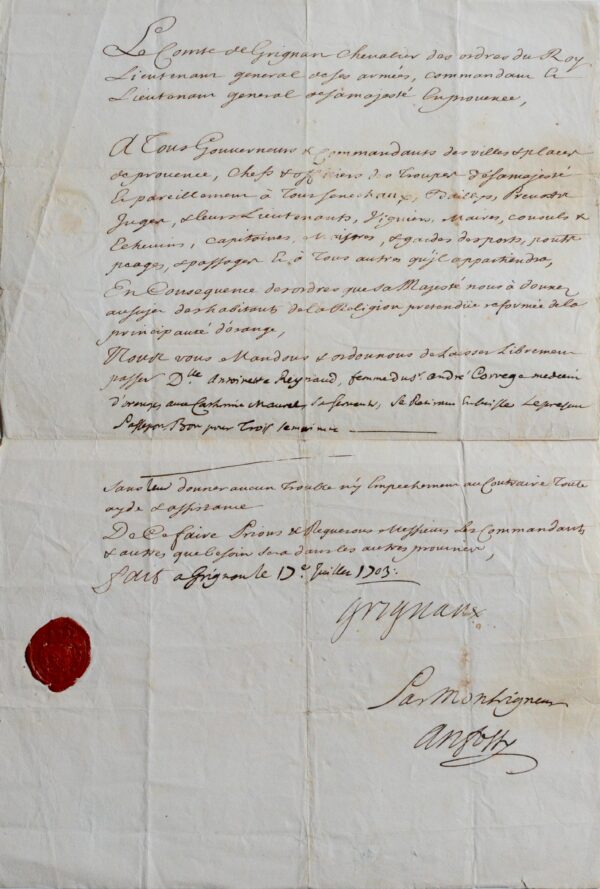 Le Comte de Grignan Chevalier des ordres du Roy
Lieutenant general de ses armées, commandant &
Lieutenant general de sa majesté En provence,
A Tous Gouverneurs & Commandants des villes & places
de provence, Chefs & officiers de Trouppes de sa majesté
& pareillement à Tous senechaux, Baillifs, Prevosts
Juges, & leurs Lieutenants, Viguiers, Maires, consuls &
Echevins, capitaines, Maistres, & gardes des ports, ponts
peages, & passages & à Tous autres qu'il appartiendra,
En Consequence des ordres que sa Majesté nous à donnez
au sujet des habitants de la Religion pretendüe reformée de la
principauté d'orange,
Nous vous Mandons & ordonnons de Laisser Librement
passer Dlle Antoinette Reynaud, femme du sr andré Correge medecin
d'orange, avec Catherine Maurel sa servante, se Retirent En le present
Passeport Bon pour Trois semaines
sans leur donner aucun Trouble n'y Empechement au Contraire Toute
ayde & assistance
De Ce faire Prions & Requerons Messieurs Les Commandants
& autres que besoin sera dans les autres provinces,
Fait a Grignan le 17e Juillet 1703.
Grignan
Par Monseigneur